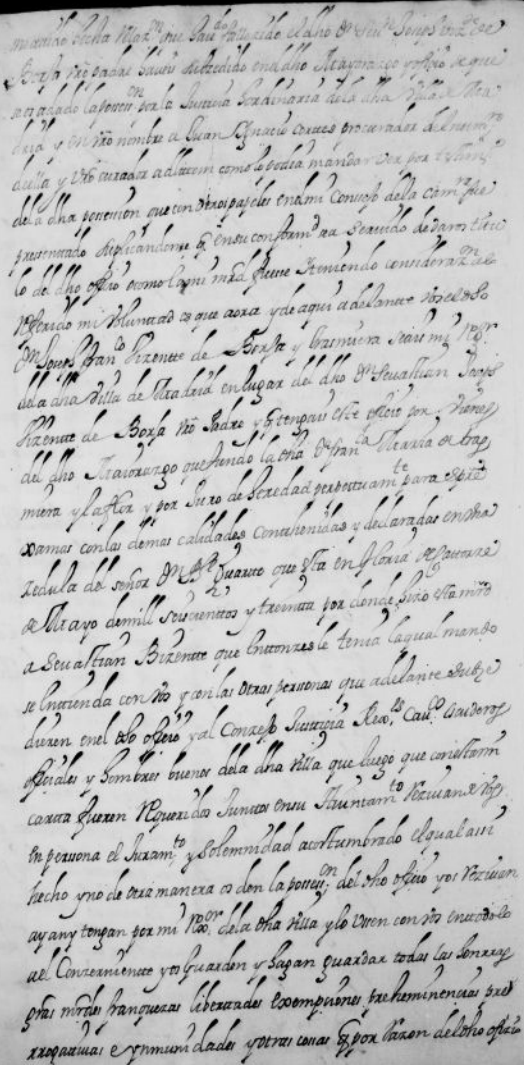 hecha relaz.on que haviendo fallecido el dho D.n Sevn Joseph
Borja vro padre haveis subcedido en dho Mayorazgo y ofizio de que
os a dado la posses.on por la Justicia hordinaria de la dha Villa de Ma
drid y en vro nombre a Juan Ygnacio procurador del num.ro
de ella y vro curador adlitem como lo podia mandar ver por testimo
de la dha posession que con otros papeles en el mi Consejo de la Cam.ra fue
presentado suplicandome q en su conform.d sea servido de daros titu
lo del dho offizio o como la mi mrd fuese y teniendo consideraz.on a lo
referido mi voluntad es que aora y de aqui adelante vos el dho
D.n Joseph fran.co Vizente de Borja y trasmiera seais mi Reg.or
de la dha Villa de Madrid en lugar del dho D.n Sevastian Joseph
Vizente de Borja vro Padre y q tengais este oficio por vienes
del dho Maiorazgo que fundo la dha D.a fran.ca Maria de tras
miera y la flor y por Juro de heredad perpettuam.te para siempre
xamas con las demas calidades conthenidas y declaradas en una
zedula del señor D.n Ph.e Quarto que esta en gloria de catorze
de Mayo de mill seiscienttos y treinta por donde hizo esta mrd
a Sevastian Vizente que enttonzes le tenia la qual mando
se entienda con vos y con las otras personas que adelante subze
dieren en el dho offizio y al Conzejo Justizia Rex.es Cav.os escuderos
offiziales y hombres buenos de la dha villa que luego que con esta mi
carta fueren requeridos Junttos en su Ayuntam.to rezivan de vos
en persona el Juram.to y solemnidad acostumbrado el qual assi
hecho y no de otra manera os den la posses.on del dho ofizio y os rezivan
ayan y tengan por mi Reg.or de la dha villa y lo usen con vos en todo lo
a el conzerniente y os guarden y hagan guardar todas las honrras
grãs mrdes franquezas libertades exempciones preheminencias pre
rrogativas e ynmunidades y otras cosas q por razon del dho ofizio